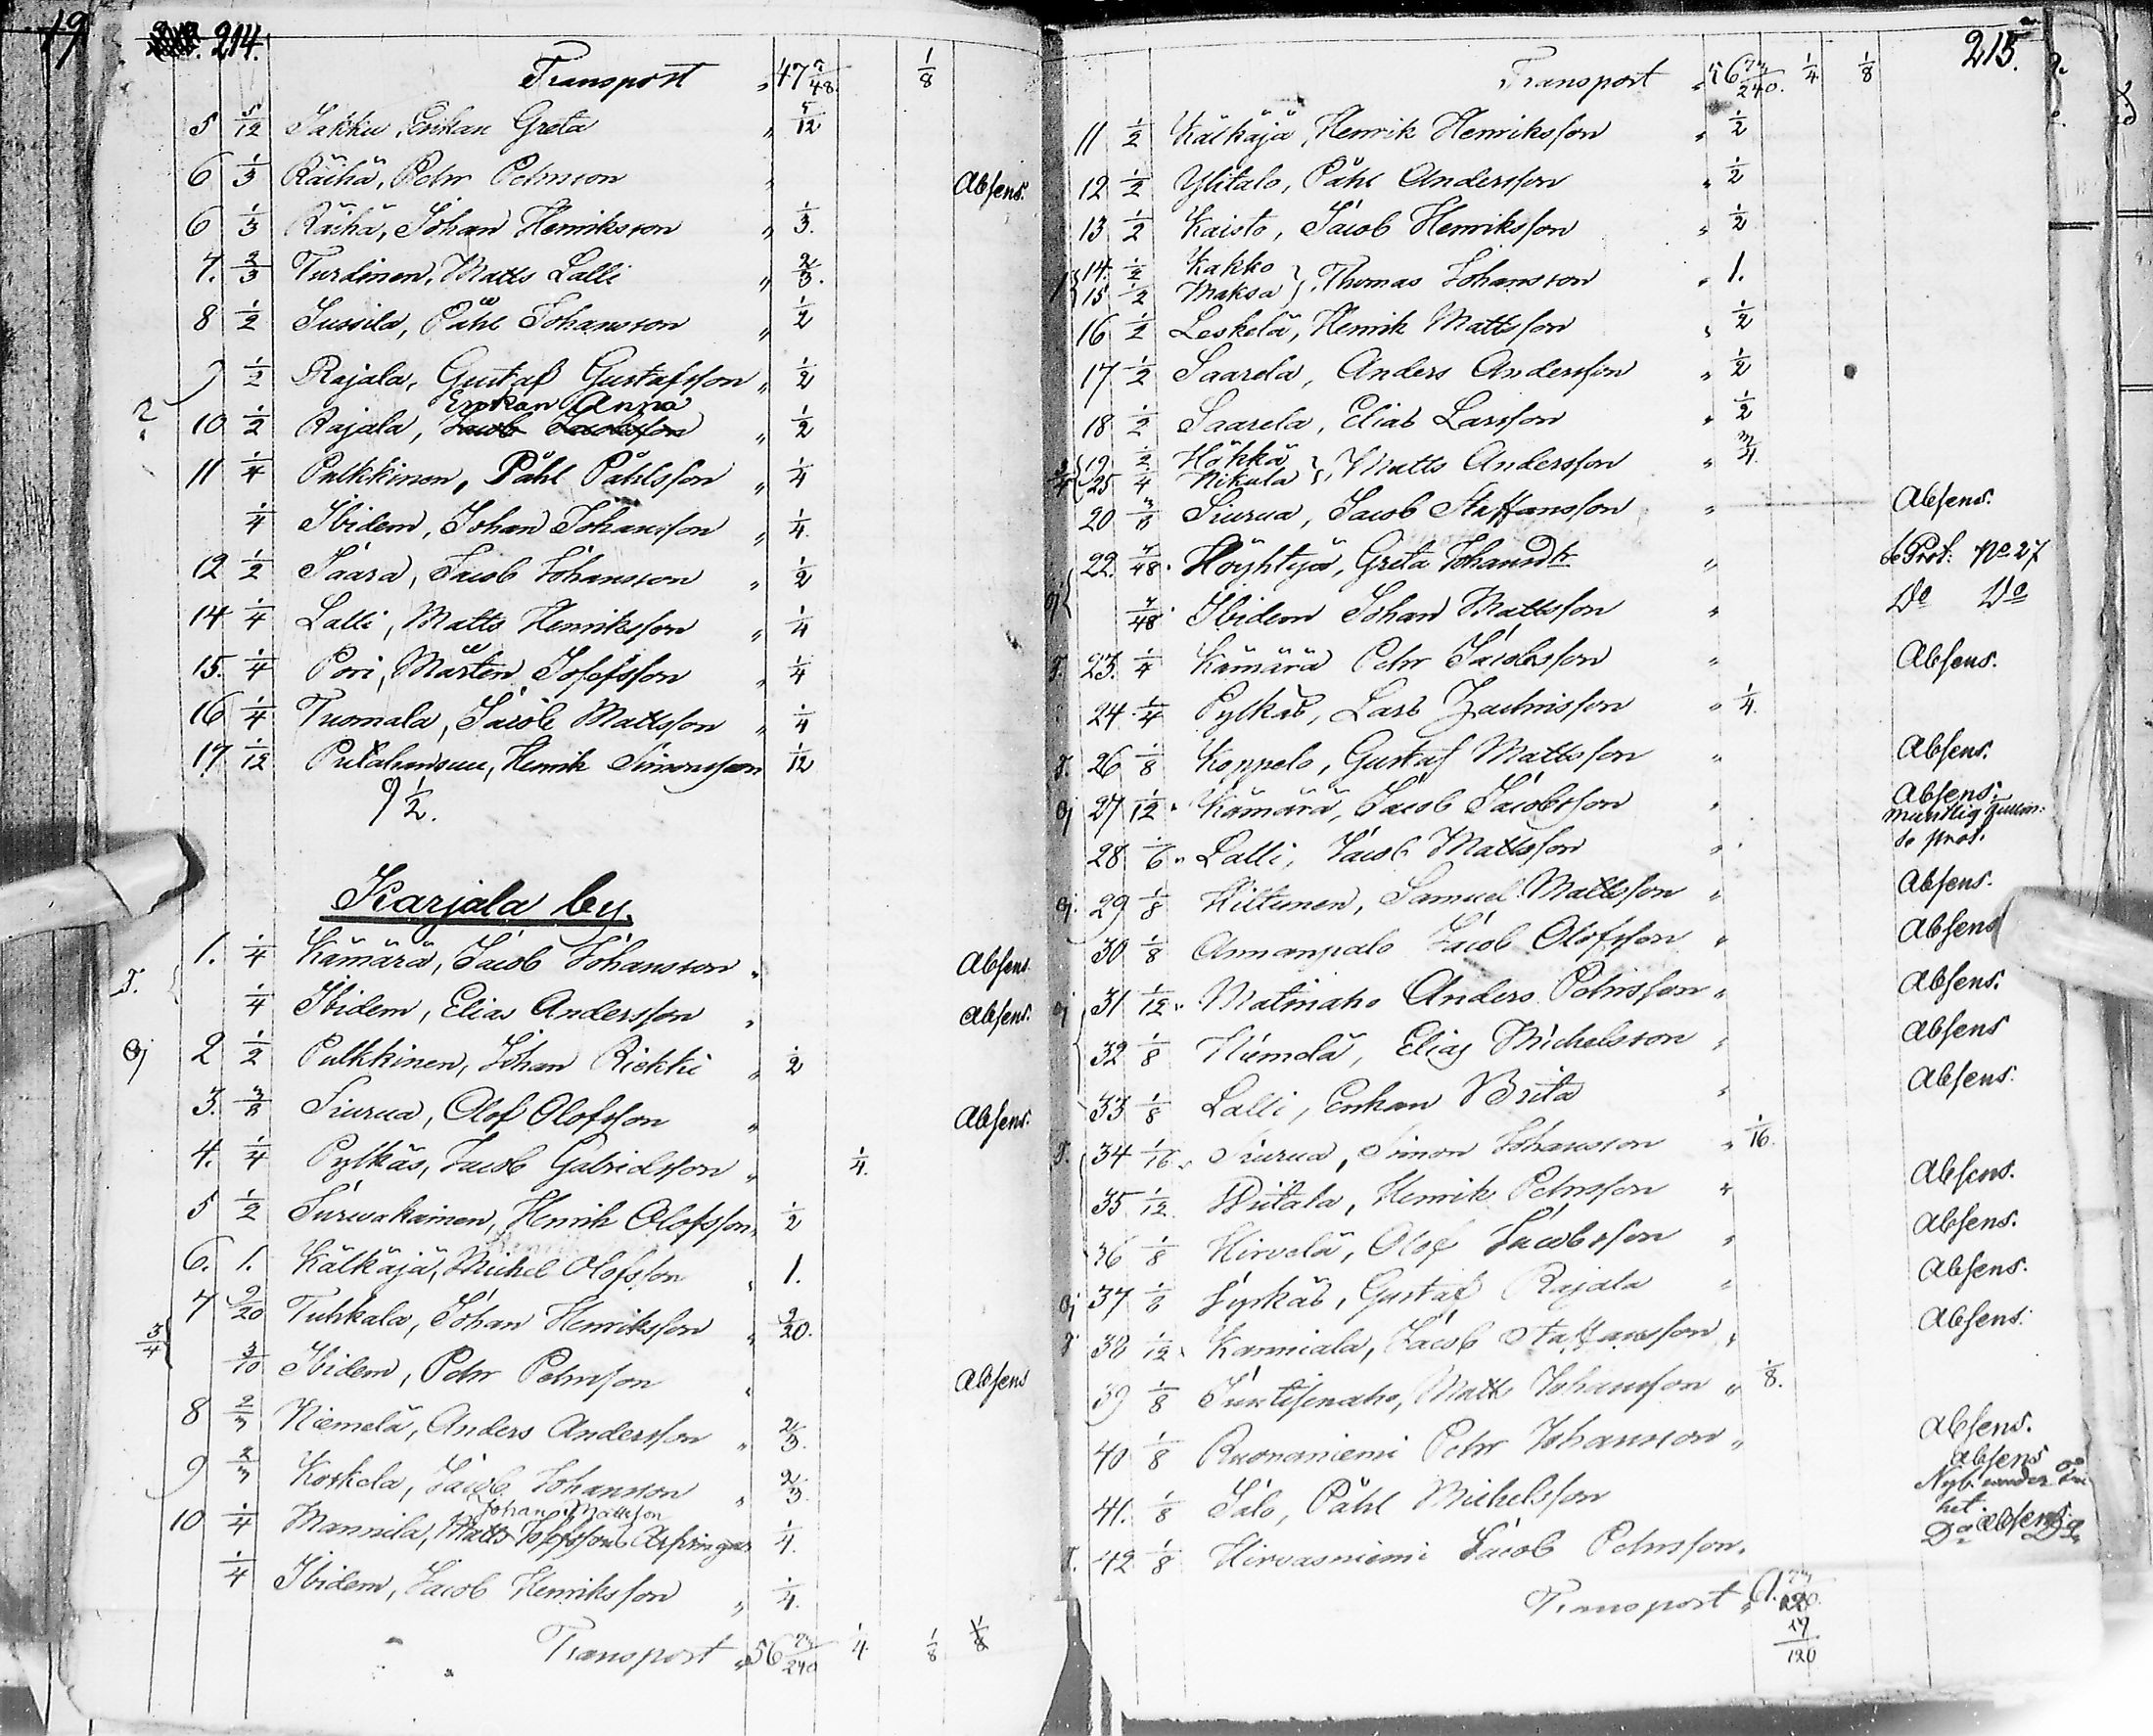 19
214.
Transport " 47 7/48. 1/8
5 5/12 Jakku, Enkan Greta " 5/12
6 1/3 Räihä, Petter Pehrsson " Absens.
6 1/3 Räihä, Johan Henriksson " 1/3.
7. 2/3 Turdinen, Matts Lalli " 2/3.
8 1/2 Jussila, Påhl Johansson " 1/2
9 1/2 Rajala, Gustaf Gustafsson " 1/2
Enkan Anna
2. 10 1/2 Rajala, Jacob Jacobsson " 1/2
11 1/4 Pulkkinen, Påhl Påhlsson " 1/4
1/4 Ibidem, Johan Johansson " 1/4
12 1/2 Jaara, Jacob Johansson " 1/2
14 1/4 Lalli, Matts Henriksson " 1/4
15. 1/4 Pori, Mårten Josefsson " 1/4
16 1/4 Tuomala, Jacob Mattsson " 1/4
17 1/12 Henrik Simonsson 1/12
9 1/2.
Karjala by.
1. 1/4 Kämärä, Jacob Johansson " Absens
1/4 Ibidem, Elias Andersson " Absens.
2 1/2 Pulkkinen, Johan Riekki " 1/2
3. 3/8 Siurua, Olof Olofsson " Absens.
4. 1/4 Pylkäs, Jacob Gabrielsson " 1/4.
5 1/2 Turwakainen, Henrik Olofsson " 1/2
6. 1. Kälkäjä, Michel Olofsson " 1.
7 9/20 Tuhkala, Johan Henriksson " 9/20.
3/4 3/10 Ibidem, Pehr Pehrsson " Absens
8 2/3 Niemelä, Anders Andersson " 2/3.
9 2/3 Koskela, Jacob Johansson " 2/3.
Johan Mattsson
10 1/4 Mannila, Matts Josefssons Arfvingar 1/4.
1/4 Ibidem, Jacob Henriksson " 1/4.
Transport " 56 73/240 1/4. 1/8 1/8
215.
Transport " 56 73/240. 1/4 1/8
11 1/2 Kälkäjä, Henrik Henriksson " 1/2
12 1/2 Ylitalo, Påhl Andersson " 1/2
13 1/2 Kaisto, Jacob Henriksson " 1/2
14. 1/2 Kakko
1 } Thomas Johansson " 1.
15 1/2 Maksa
16 1/2 Leskelä, Henrik Mattsson " 1/2
17 1/2 Saarela, Anders Andersson " 1/2
18 1/2 Saarela, Elias Larsson " 1/2
3/4 19 1/2 Höhkä } Matts Andersson " 3/4.
25 1/4 Nikula
20 3/8 Siurua, Jacob Staffansson " Absens.
22. 7/48. Höyhtyä, Greta Johansdtr " se Prot: No 27
7/48. Ibidem Johan Mattsson " Do Do
23. 1/4 Kämärä Pehr Jacobsson " Absens.
24. 1/4 Pylkäs, Lars Zachrisson " 1/4.
26 1/8 Koppelo, Gustaf Mattsson " Absens.
27 1/12 Kämärä, Jacob Jacobsson " Absens.
muntlig
se prot.
28 1/6 Lalli, Jacob Mattsson "
29 1/8 Hiltunen, Samuel Mattsson " Absens.
30 1/8 Annanpalo Jacob Olofsson " Absens
31 1/12 Matinaho Anders Pehrsson " Absens.
32 1/8 Niemelä, Elias Michelsson " Absens
33 1/8 Lalli, Enkan Brita " Absens.
34 1/16 Siurua, Simon Johansson " 1/16.
35 1/12 Wiitala, Henrik Pehrsson " Absens.
36 1/8 Hirvelä, Olof Jacobsson " Absens.
37 1/8 Pyykäs, Gustaf Rajala " Absens.
38 1/12 Kanniala, Jacob Staffansson " Absens.
39 1/8 Matts Johansson " 1/8.
40 1/8 Ruonaniemi Pehr Johansson " Absens.
41. 1/8 Salo, Påhl Michelsson Absens
Nyb. under
het
42 1/8 Hirvasniemi Jacob Pehrsson. Do absens Do
Transport " 61. 73/120.
17/120